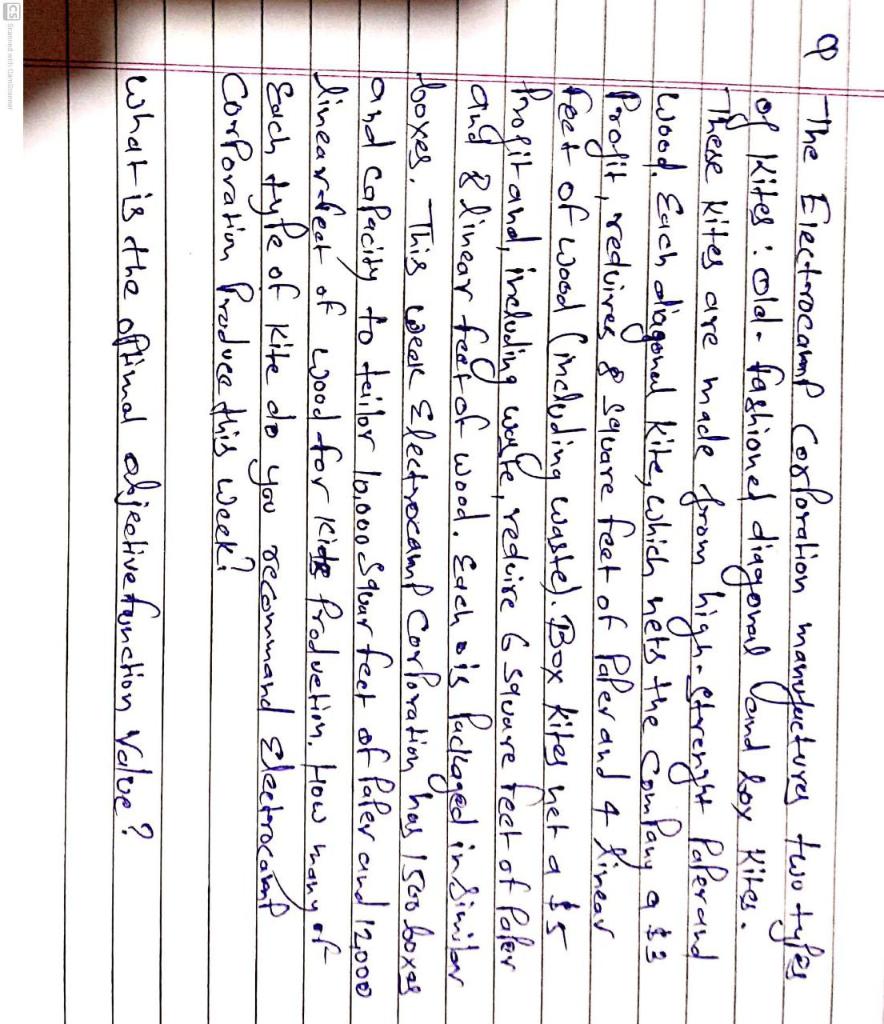 Q The Electrocamp Corporation manufactures two types
of Kites : old-fashioned diagonal and box Kites.
These Kites are made from high-strenght Paper and
wood. Each diagonal Kite, which nets the Company a $3
Profit, requires 8 square feet of Paper and 4 linear
feet of wood (including waste). Box Kites net a $5
Profit and, including waste, require 6 square feet of Paper
and 8 linear feet of wood. Each is Packaged in similar
boxes. This week Electrocamp Corporation has 1500 boxes
and capacity to tailor 10,000 Squar feet of Paper and 12,000
linear-feet of wood for Kite Production. How many of
Each type of Kite do you recommand Electrocamp
Corporation Produce this week?
What is the optimal objective function Value?
CS Scanned with CamScanner